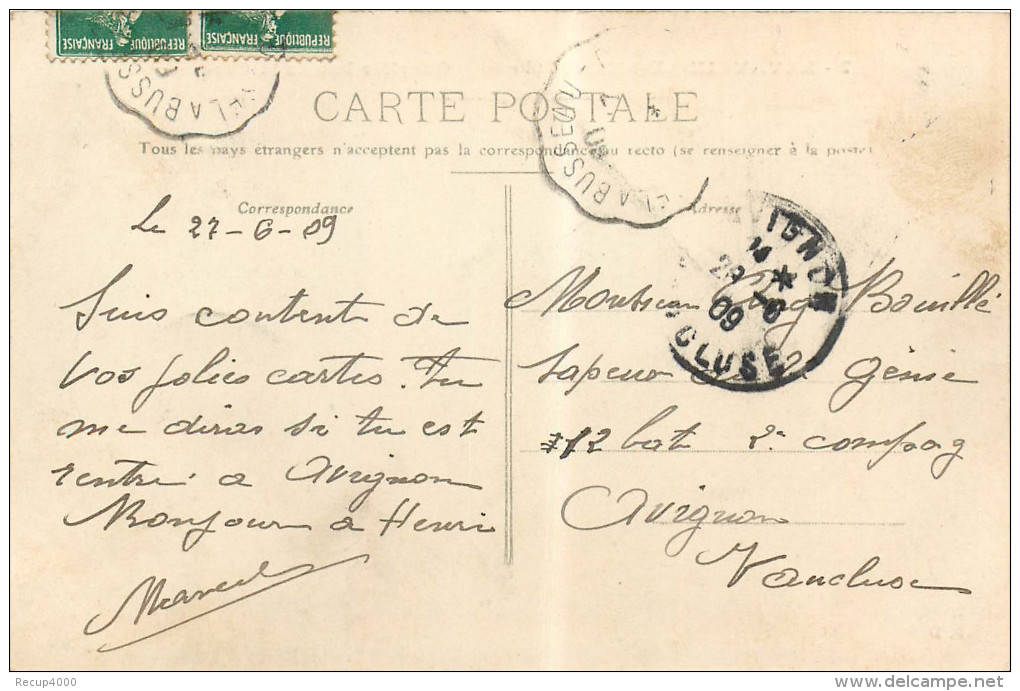 REPUBLIQUE FRANÇAISE
REPUBLIQUE FRANÇAISE
CARTE POSTALE
Tous les pays étrangers n'acceptent pas la correspondance au recto (se renseigner à la poste)
Correspondance
Le 27-6-09
Suis content de
vos jolies cartes. Tu
me diras si tu est
rentré à Avignon
Monjour a Henri
Marcel
Adresse
Monsieur Bouillé
Sapeur au Génie
12 bat 2e compag
Avignon
Vaucluse
LABUSS
LABUSSEAU
AVIGNON
14 *
29 -6
09
VAUCLUSE
Recup4000
delcampe.net